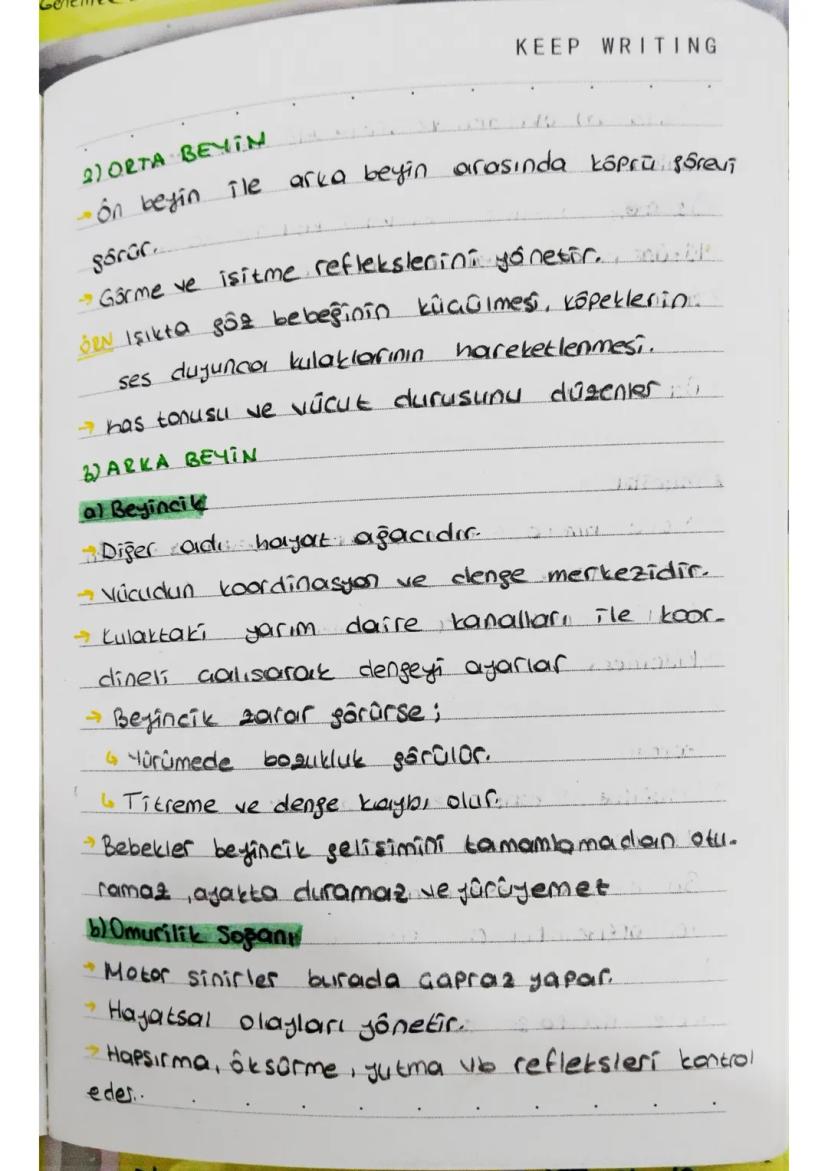 KEEP WRITING
2) ORTA BEYİN
→ Ön beyin ile arka beyin arasında köprü görevi
görür.
→ Görme ve işitme reflekslerini yönetir.
ÖRN Işıkta göz bebeğinin küçülmesi, köpeklerin
ses duyunca kulaklarının hareketlenmesi.
→ kas tonusu ve vücut durusunu düzenler
3) ARKA BEYİN
a) Beyincik
→ Diğer adı hayat ağacıdır.
→ Vücudun koordinasyon ve denge merkezidir.
→ kulaktaki yarım daire kanalları ile koor-
dineli çalısarak dengeyi ayarlar
→ Beyincik zarar görürse;
↳ Yürümede bozukluk görülür.
↳ Titreme ve denge kaybı olur.
→ Bebekler beyincik gelisimini tamamlamadan otu-
ramaz, ayakta duramaz ve yürüyemet
b) Omurilik Soğanı
→ Motor sinirler burada çapraz yapar.
→ Hayatsal olayları yönetir.
→ Hapsırma, öksürme, yutma vb refleksleri kontrol
eder..